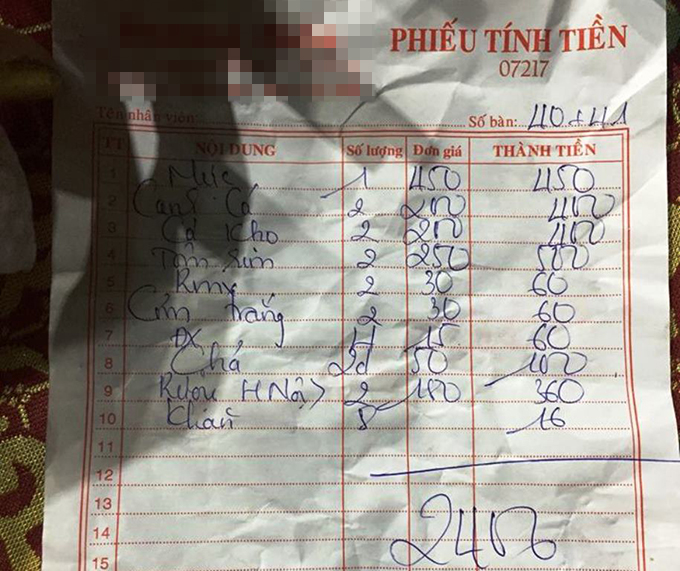 PHIẾU TÍNH TIỀN
07217
Tên nhân viên: Số bàn: 40+41
TT NỘI DUNG Số lượng Đơn giá THÀNH TIỀN
1 Mực 1 450 450
2 Canh Cá 2 200 400
3 Cá Kho 2 200 400
4 2 250 500
5 2 30 60
6 Cơm trắng 2 30 60
7 ĐX 4 15 60
8 Chả 2d 50 100
9 Rượu HNội 2 180 360
10 Khăn 8 16
11
12
13
14
15
2400